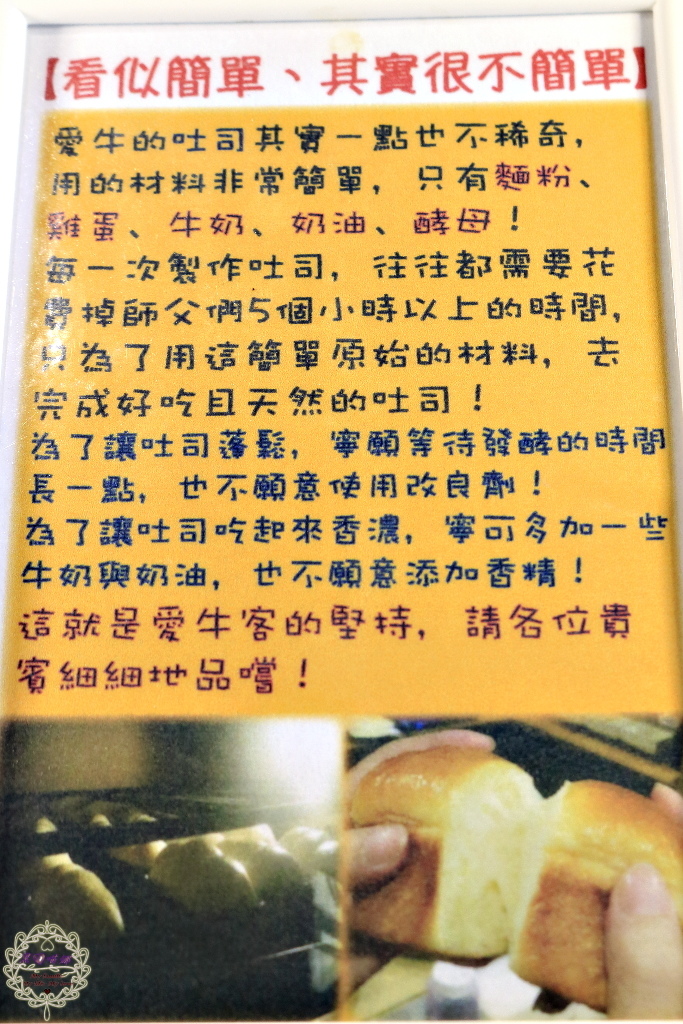 【看似簡單、其實很不簡單】
愛牛的吐司其實一點也不稀奇，
用的材料非常簡單，只有麵粉、
雞蛋、牛奶、奶油、酵母！
每一次製作吐司，往往都需要花
費掉師父們5個小時以上的時間，
只為了用這簡單原始的材料，去
完成好吃且天然的吐司！
為了讓吐司蓬鬆，寧願等待發酵的時間
長一點，也不願意使用改良劑！
為了讓吐司吃起來香濃，寧可多加一些
牛奶與奶油，也不願意添加香精！
這就是愛牛客的堅持，請各位貴
賓細細地品嚐！